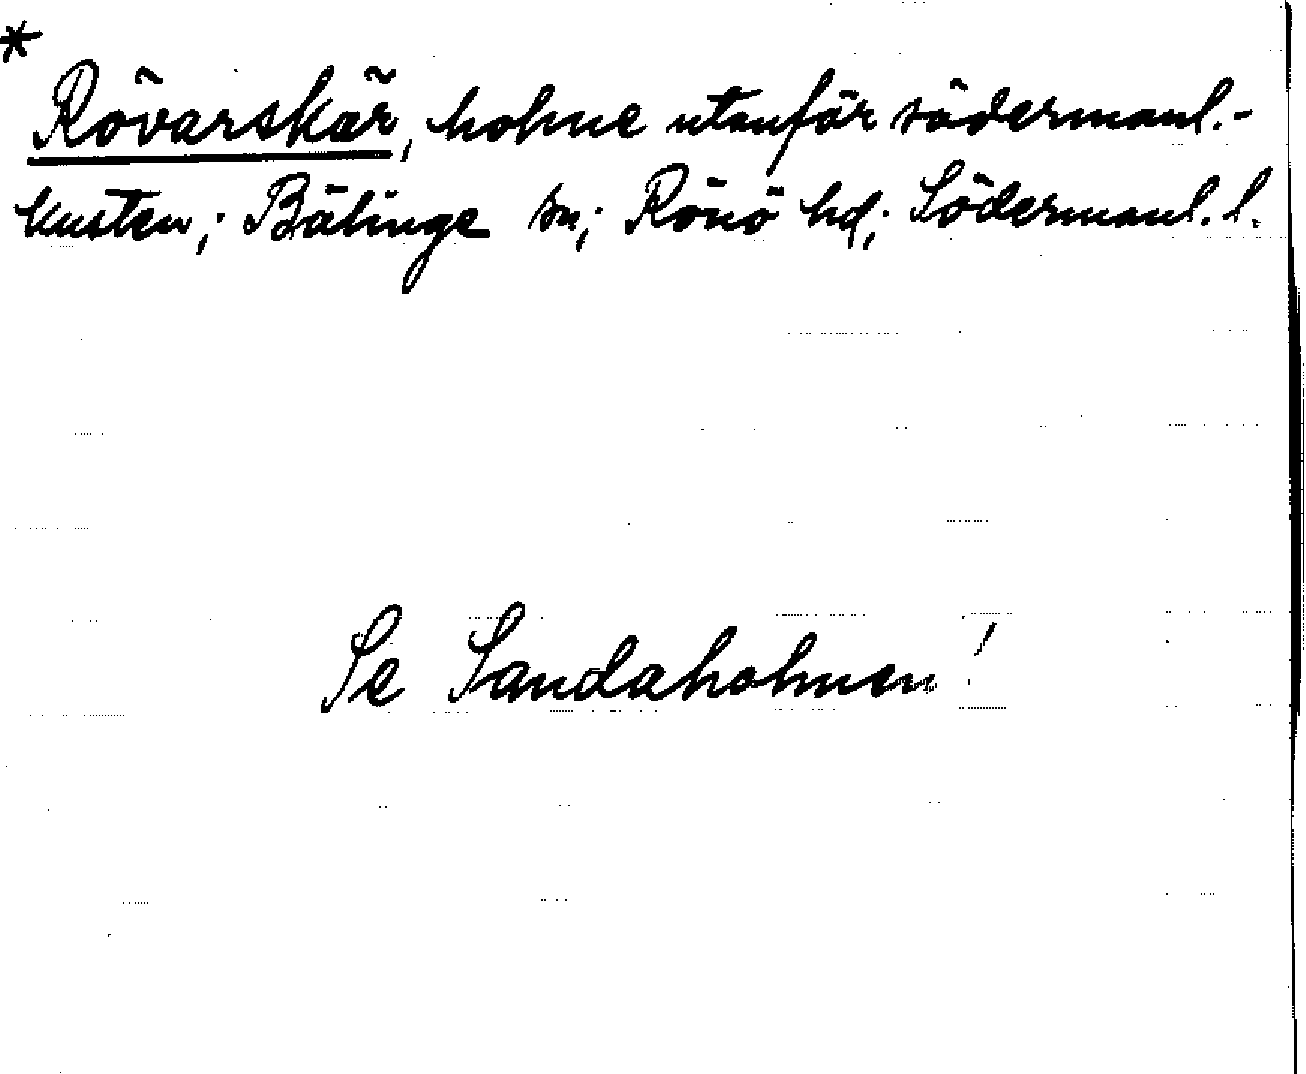 *
Rövarskär, holme utanför södermanl.-
kusten; Bälinge sn; Rönö hd; Södermanl. l.
Se Sandaholmen!